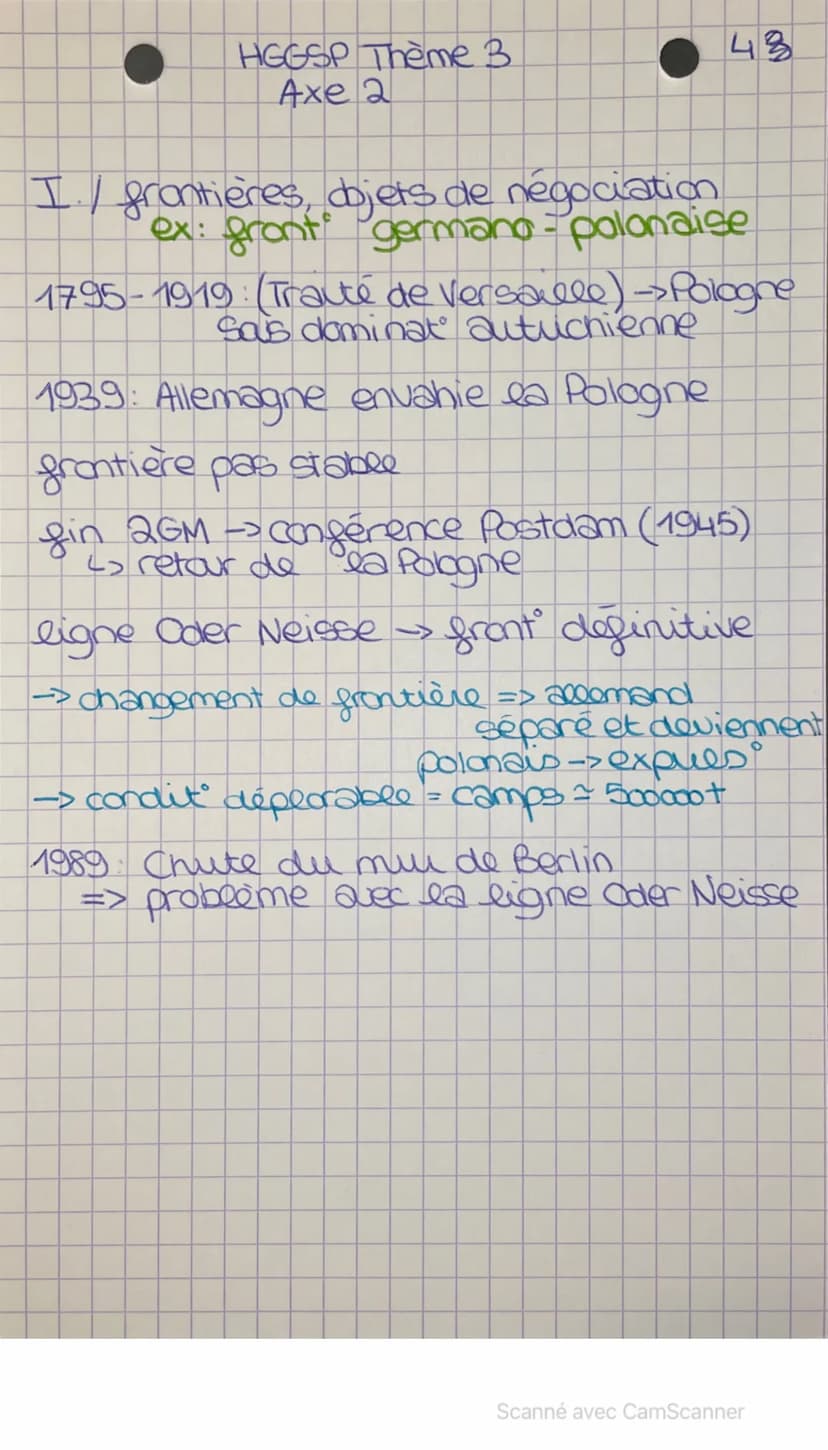 HGGSP Thème 3
48
Axe 2
I./ frontières, objets de négociation
ex: front° germano-polonaise
1795-1919: (Traité de Versaille) → Pologne
sous dominat° autrichienne
1939: Allemagne envahie la Pologne
frontière pas stable
fin 2GM → conférence Postdam (1945)
↳ retour de la Pologne
ligne Oder Neisse → front° définitive
→ changement de frontière => allemand
séparé et deviennent
polonais → expuls°
→ condit° déplorable = camps ≈ 500000+
1989: Chute du mur de Berlin
=> problème avec la ligne Oder Neisse
Scanné avec CamScanner